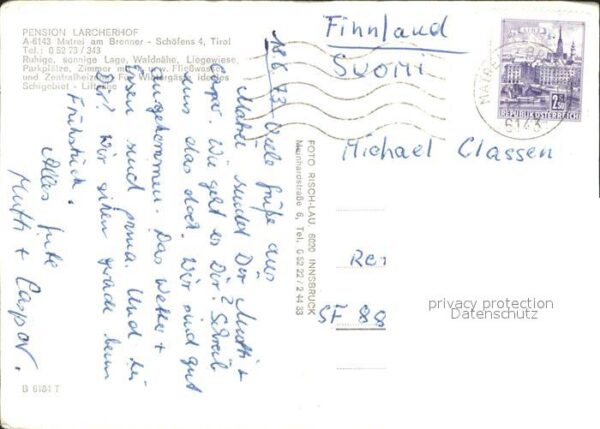 PENSION LARCHERHOF
A-6143 Matrei am Brenner - Schöfens 4, Tirol
Tel.: 0 52 73 / 343
Ruhige, sonnige Lage, Waldnähe, Liegewiese,
Parkplätze, Zimmer mit
und Zentralheizung. Für Wintergäste ideales
Schigebiet - Liftnähe
18.6.73 Viele Grüße aus
Matrei sendet Dir Mutti +
Caspar. Wie geht es Dir? Schreib
uns das doch. Wir sind gut
angekommen. Das Wetter +
Essen sind prima. Und bei
Dir? Wir sitzen gerade beim
Frühstück.
Alles Gute
Mutti + Caspar.
B 6184 T
FOTO RISCH-LAU, 6020 INNSBRUCK
Meinhardstraße 6, Tel. 0 52 22 / 2 44 33
Finnland
SUOMI
2.50
REPUBLIK ÖSTERREICH
6143
Michael Classen
SF 88
privacy protection
Datenschutz